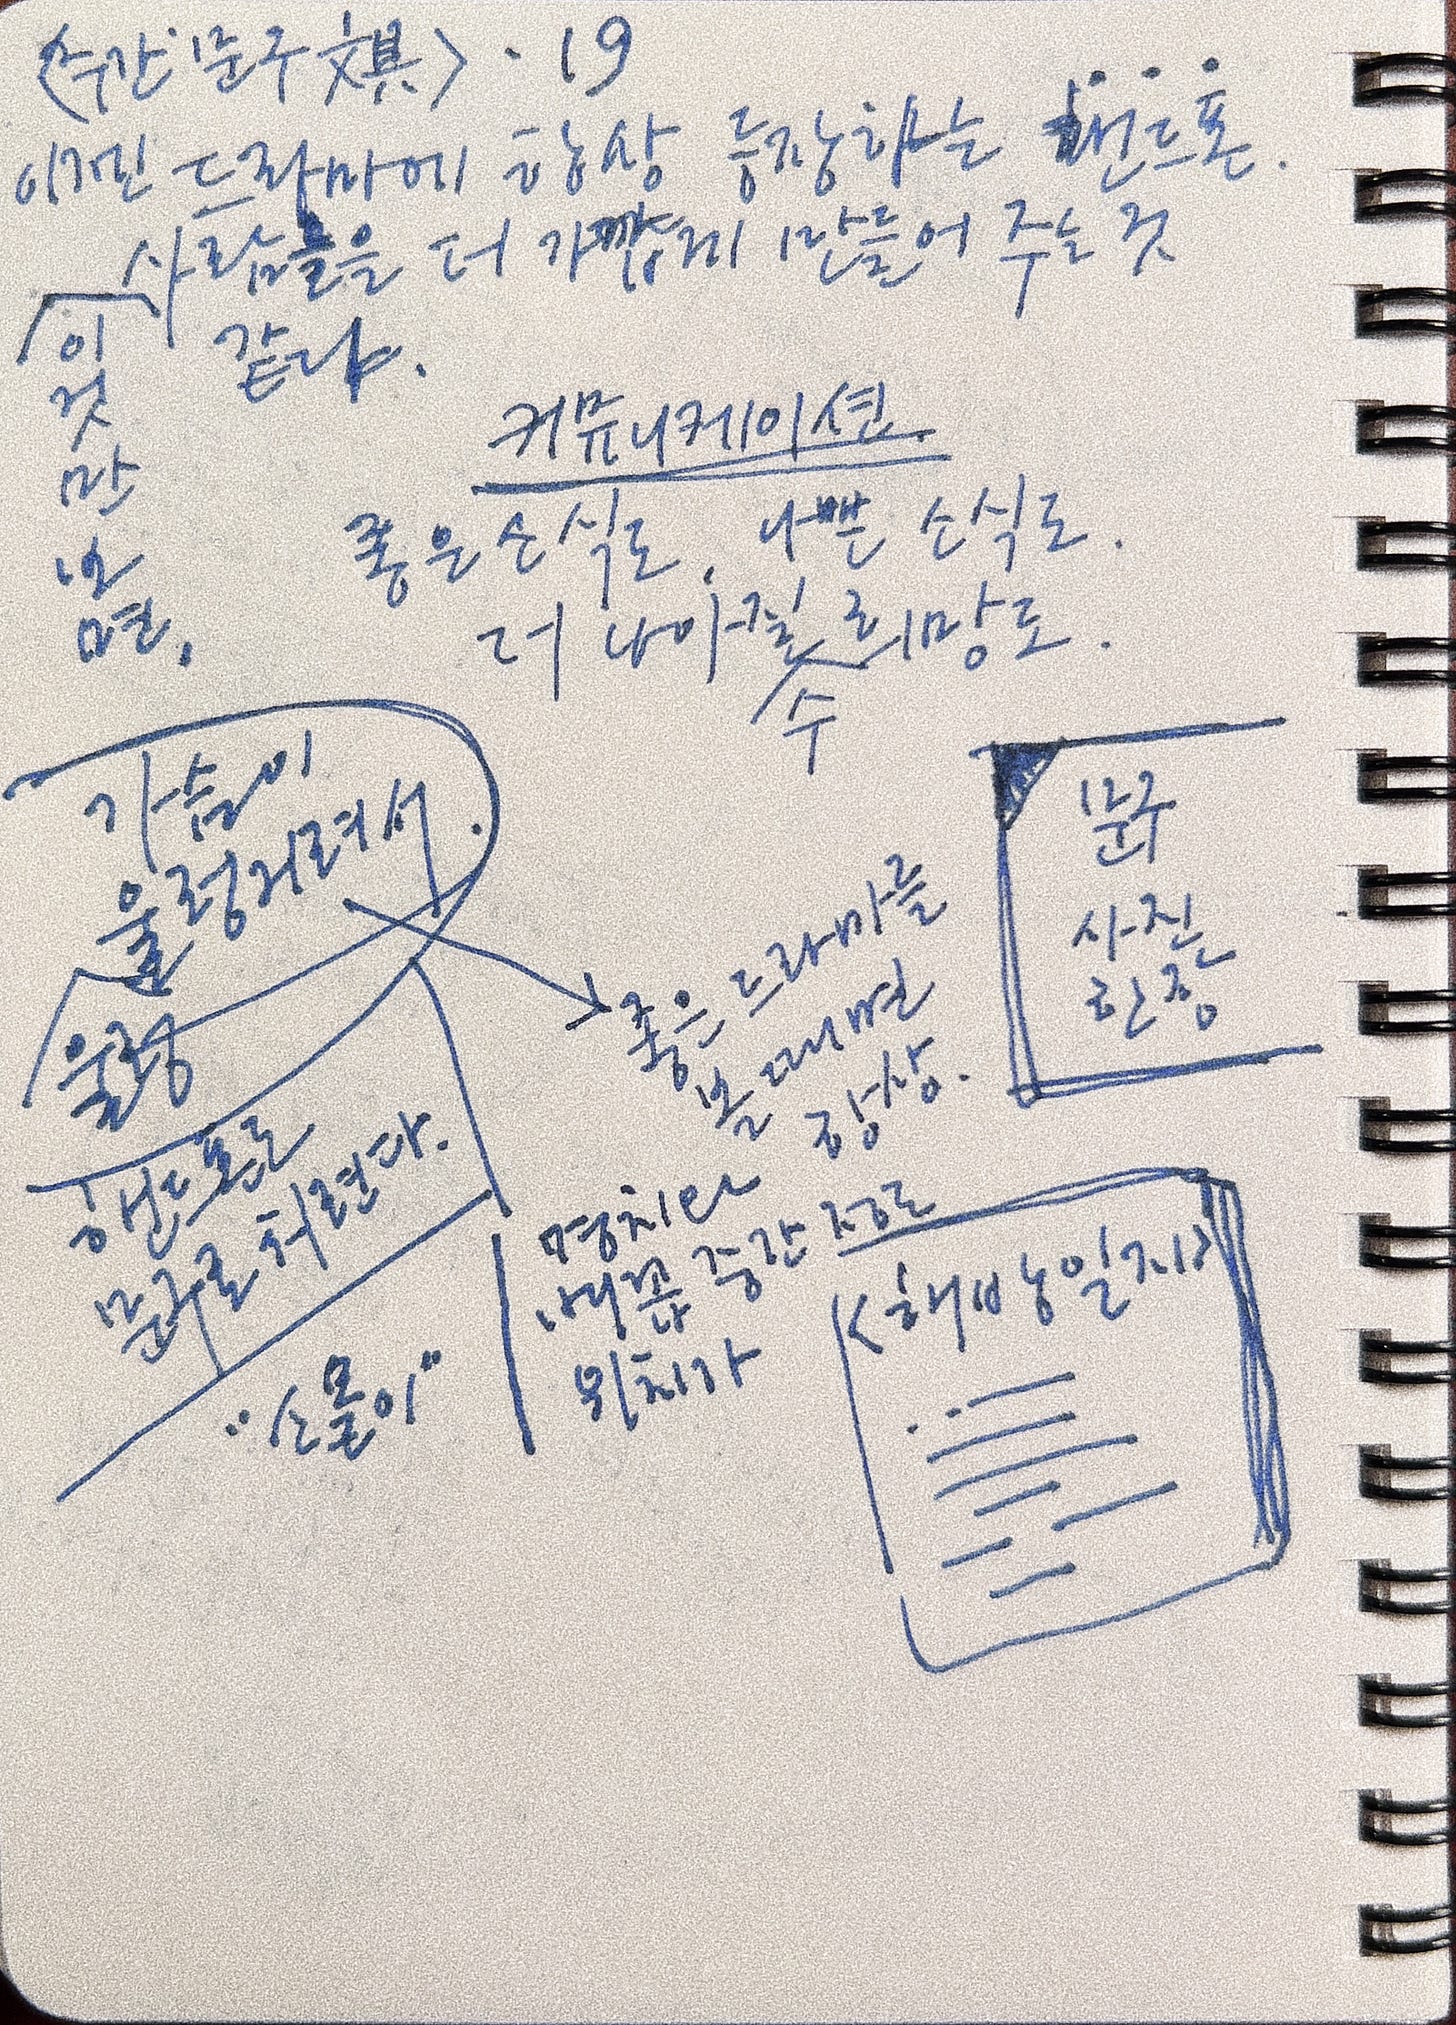 <주간 문구 文具> · 19
이젠 드라마에 항상 등장하는 핸드폰.
사람들을 더 가깝게 만들어 주는 것
같다.
이것만 보면,
커뮤니케이션.
좋은 소식도, 나쁜 소식도.
더 나아질 희망도.
수
가슴이
울렁거려서.
울렁
핸드폰로
문구로 처련다.
"소몰이"
좋은 드라마를
볼 때면
항상.
명치와
배꼽 중간 정도
위치가
문구
사진
한장
<해방일지>